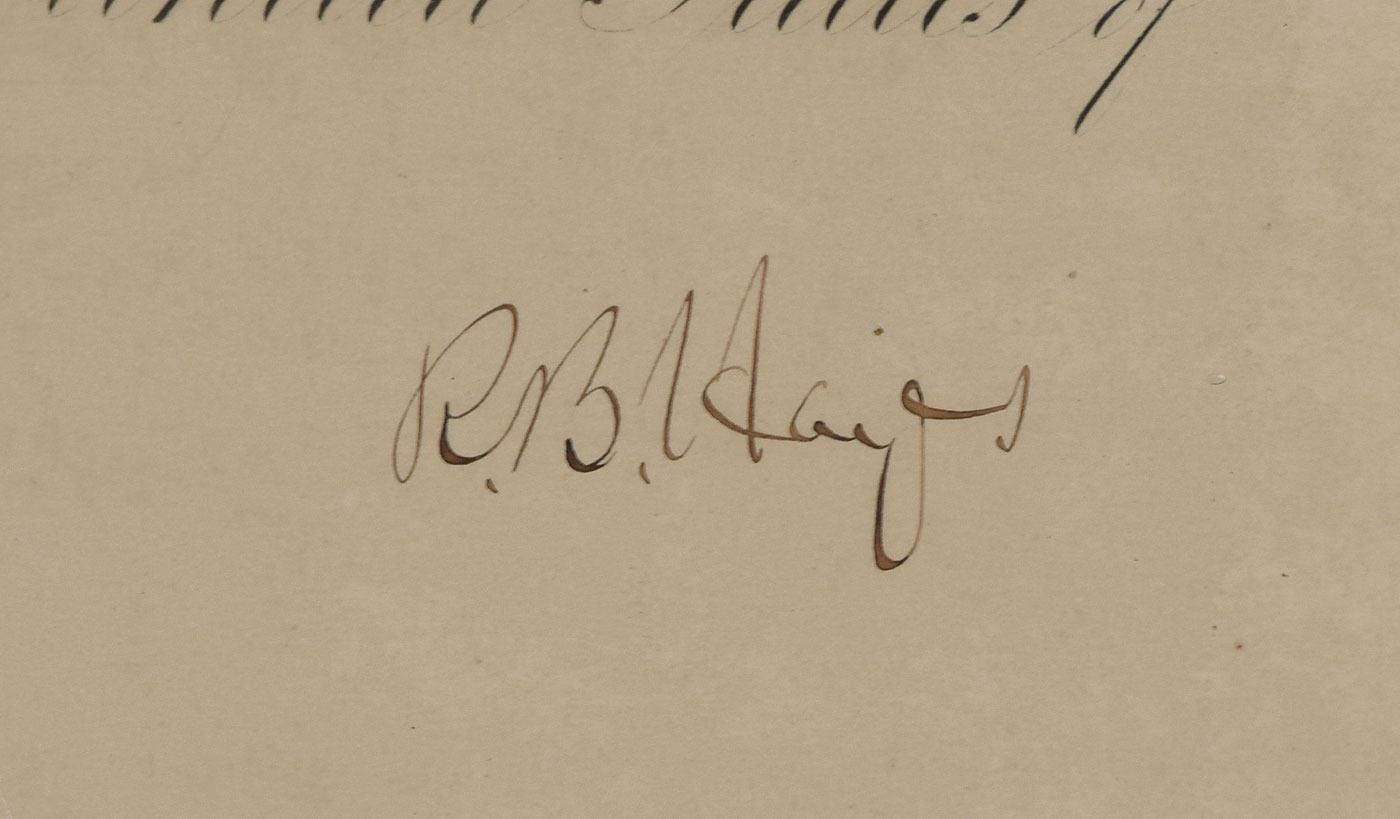 States of
R. B. Hayes